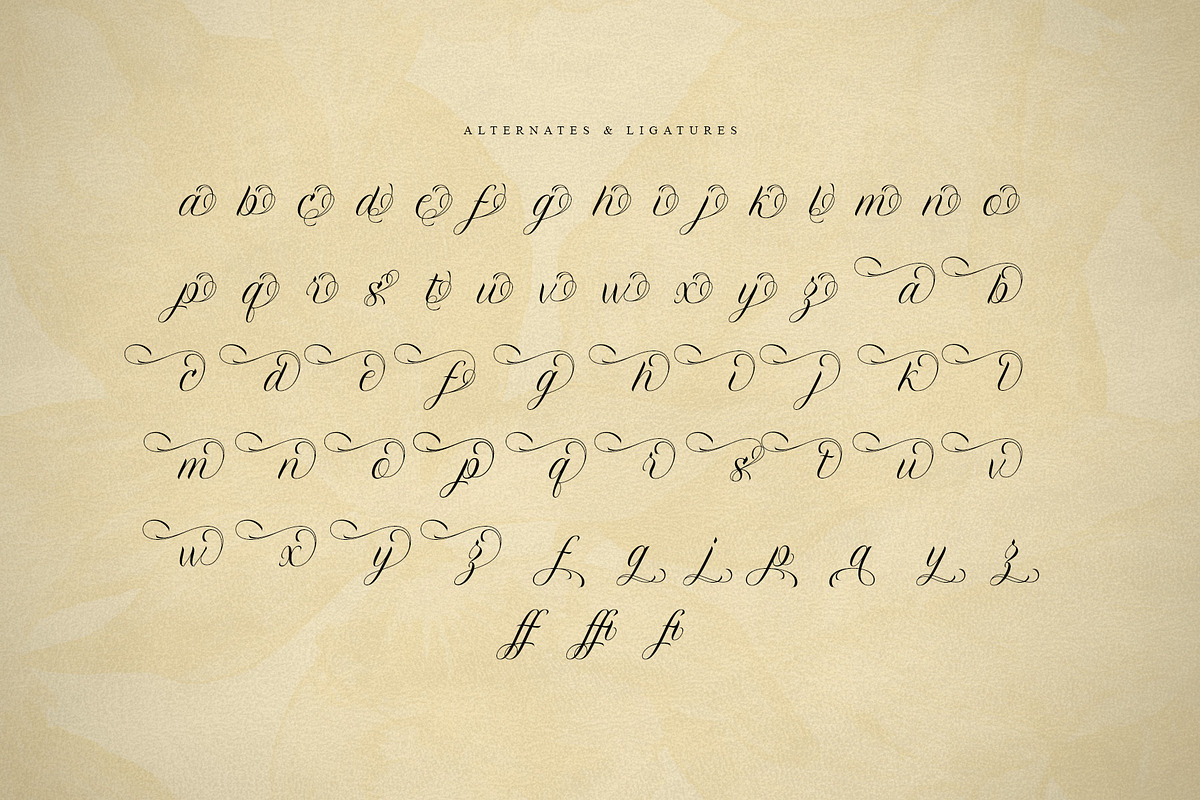 ALTERNATES & LIGATURES
a b c d e f g h i j k l m n o
p q r s t u v w x y z a b
c d e f g h i j k l
m n o p q r s t u v
w x y z f g j p q y z
ff ffi fi